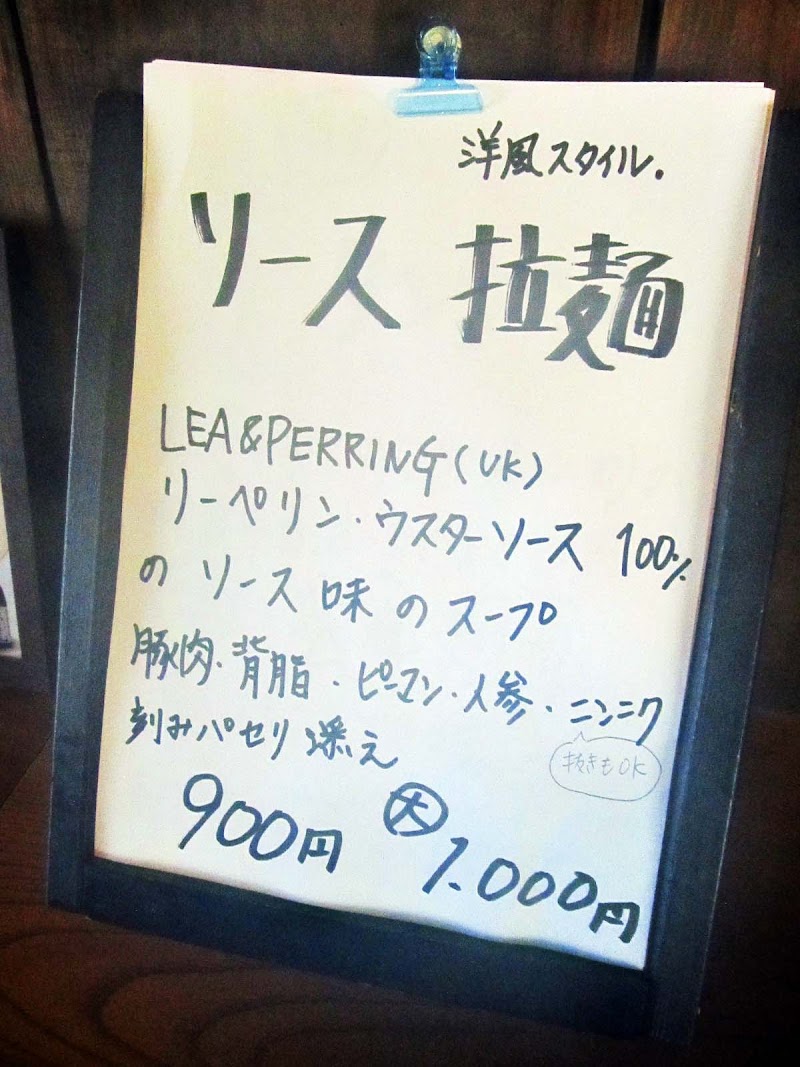 洋風スタイル.
ソース 拉麺
LEA&PERRING(UK)
リーペリン・ウスターソース 100%
の ソース 味 の スープ
豚肉・背脂・ピーマン・人参・ニンニク
抜きもOK
刻みパセリ添え
900円 大 1.000円